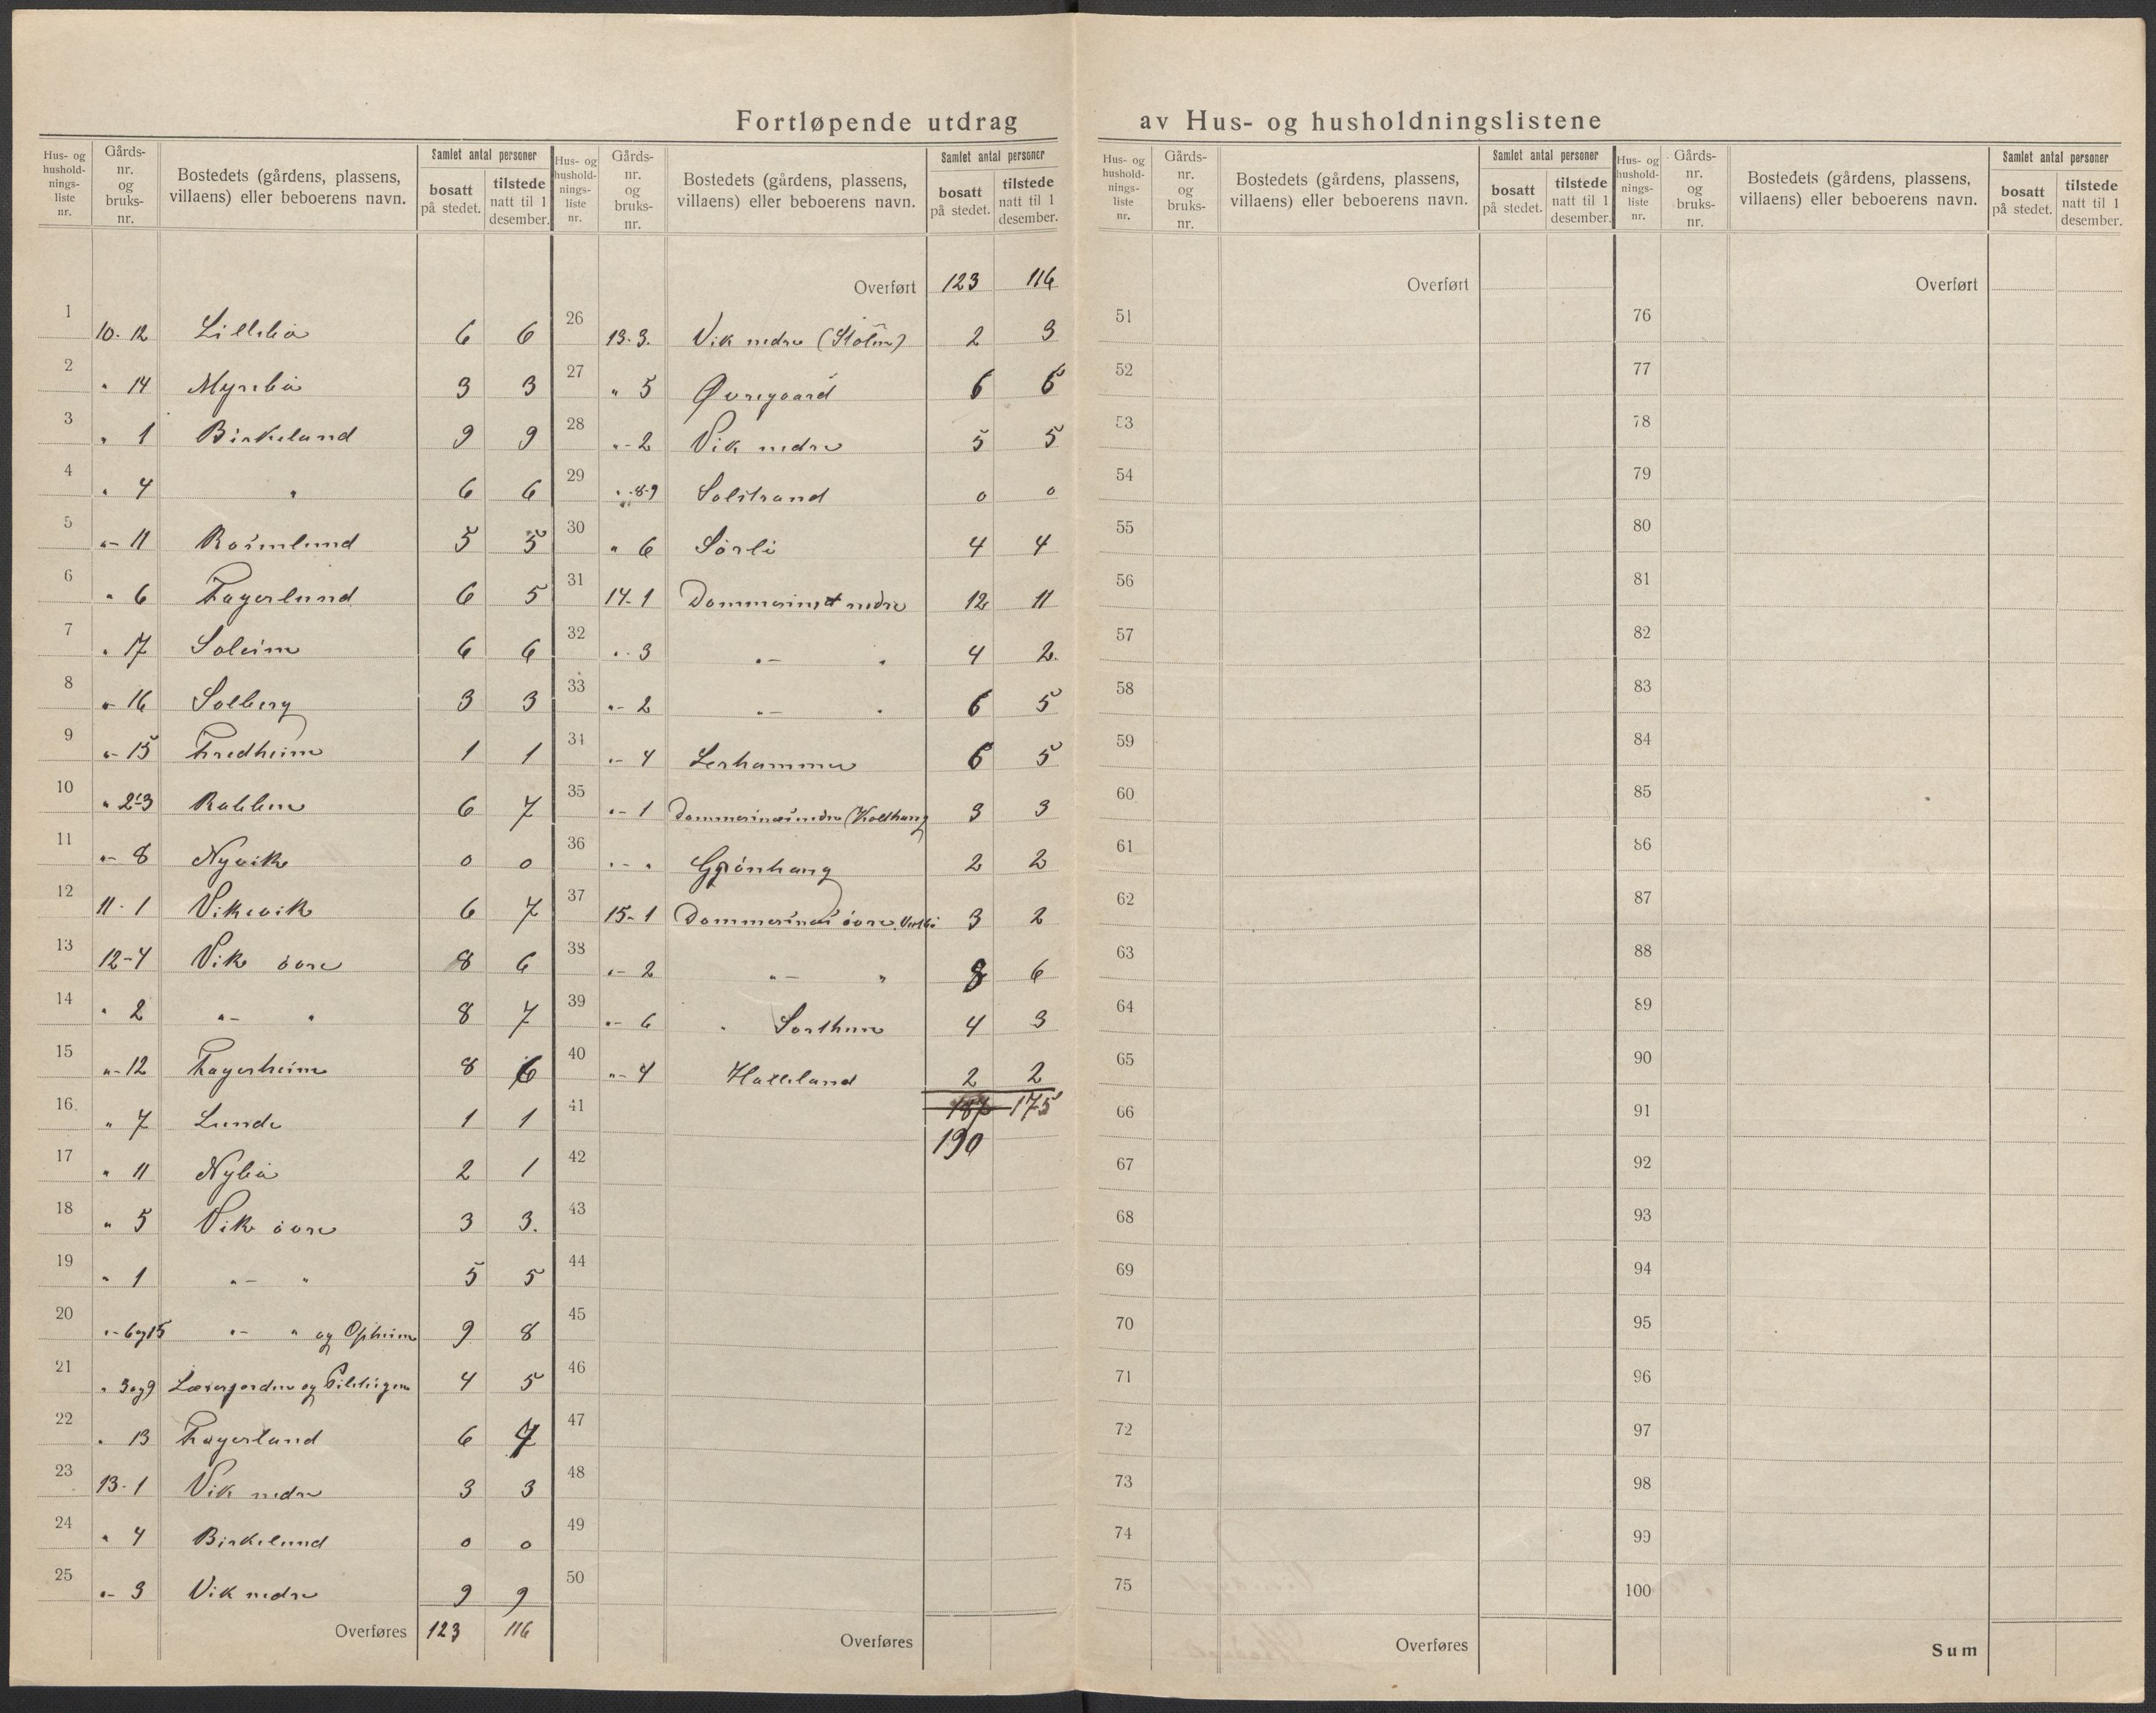 Fortløpende utdrag av Hus- og husholdningslistene
Hus- og hushold-nings-liste nr. Gårds-nr. og bruks-nr. Bostedets (gårdens, plassens, villaens) eller beboerens navn. Samlet antal personer bosatt på stedet. tilstede natt til 1 desember.
1 10-12 Lillebø 6 6
2 " 14 Myrebø 3 3
3 " 1 Birkeland 9 9
4 " 4 " 6 6
5 "- 11 Rosenlund 5 5
6 " 6 Fagerlund 6 5
7 " 17 Soleim 6 6
8 "- 16 Solberg 3 3
9 "- 15 Fredheim 1 1
10 " 2-3 Rabben 6 7
11 "- 8 Nyvik 0 0
12 11-1 Vikevik 6 7
13 12-4 Vik øvre 8 6
14 " 2 "- " 8 7
15 "- 12 Fagerheim 8 6
16 " 7 Lunde 1 1
17 " 11 Nybø 2 1
18 " 5 Vik øvre 3 3.
19 " 1 "- " 5 5
20 "- 6og15 "- " og Opheim 9 8
21 " 3og9 og 4 5
22 " 13 Fagerland 6 7
23 13-1 Vik nedre 3 3
24 " 4 Birkelund 0 0
25 "- 3 Vik nedre 9 9
Overføres 123 116
Hus- og hushold-nings-liste nr. Gårds-nr. og bruks-nr. Bostedets (gårdens, plassens, villaens) eller beboerens navn. Samlet antal personer bosatt på stedet. tilstede natt til 1 desember.
Overført 123 116
26 13-3. Vik nedre (Stølen) 2 3
27 " 5 Øvregaard 6 6
28 "- 2 Vik nedre 5 5
29 "- 8-9 Solstrand 0 0
30 " 6 Sørli 4 4
31 14-1 Dommersnet nedre 12 11
32 "- 3 "- " 4 2.
33 "- 2 "- " 6 5
34 "- 4 Lerhammer 6 5
35 "- 1 Dommersnes nedre (Kolthaug 3 3
36 "- " Grønhaug 2 2
37 15-1 Dommersnes øvre. 3 2
38 "- 2 "- " 8 6
39 "- 6 " Sorthun 4 3
40 "- 4 Halleland 2 2
41 187 175
190
42
43
44
45
46
47
48
49
50
Overføres
Hus- og hushold-nings-liste nr. Gårds-nr. og bruks-nr. Bostedets (gårdens, plassens, villaens) eller beboerens navn. Samlet antal personer bosatt på stedet. tilstede natt til 1 desember.
Overført
51
52
53
54
55
56
57
58
59
60
61
62
63
64
65
66
67
68
69
70
71
72
73
74
75
Overføres
Hus- og hushold-nings-liste nr. Gårds-nr. og bruks-nr. Bostedets (gårdens, plassens, villaens) eller beboerens navn. Samlet antal personer bosatt på stedet. tilstede natt til 1 desember.
Overført
76
77
78
79
80
81
82
83
84
85
86
87
88
89
90
91
92
93
94
95
96
97
98
99
100
Sum